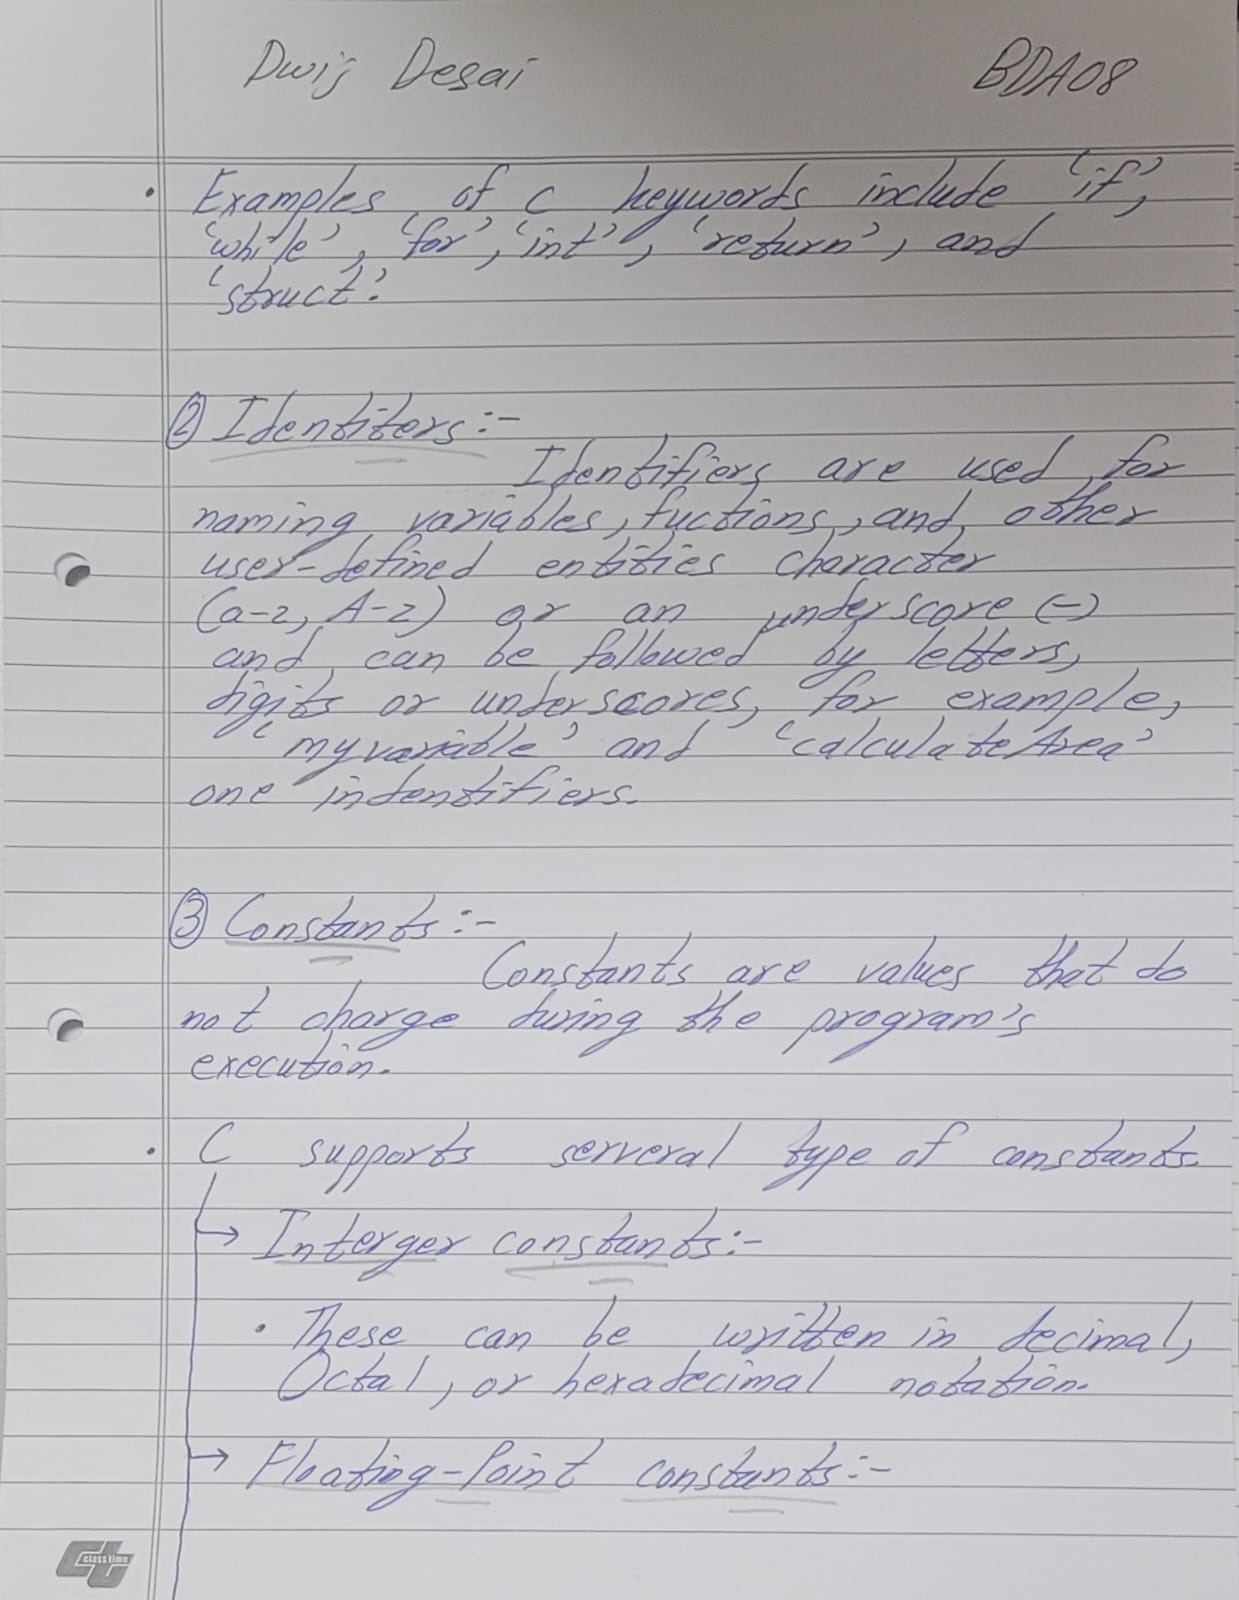 Dwij Desai BDA08
• Examples of C keywords include 'if',
'while', 'for', 'int', 'return', and
'struct'.
② Identifers:-
Identifiers are used for
naming variables, fuctions, and other
user-defined entities character
(a-z, A-z) or an underscore (-)
and can be followed by letters,
digits or underscores, for example,
'myvariable' and 'calculateArea'
one indentifiers.
③ Constants:-
Constants are values that do
not charge during the program's
execution.
• C supports serveral type of constants.
→ Interger constants:-
• These can be written in decimal,
Octal, or hexadecimal notation.
→ Floating-Point constants:-
ct class time